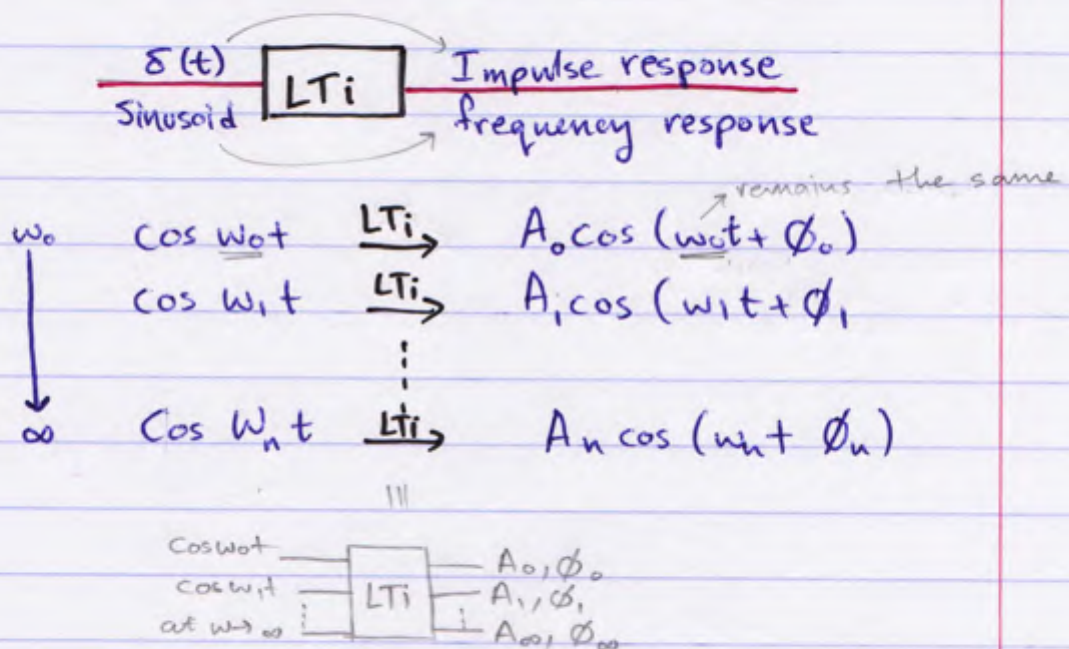 δ(t) LTi Impulse response
Sinusoid frequency response
remains the same
ω₀ cos ω₀t LTi → A₀ cos (ω₀t + ϕ₀)
cos ω₁t LTi → A₁ cos (ω₁t + ϕ₁
∞ Cos Wₙt LTi → Aₙ cos (ωₙt + ϕₙ)
|||
cosω₀t LTi A₀, ϕ₀
cosω₁t A₁, ϕ₁
at ω→∞ A∞, ϕ∞